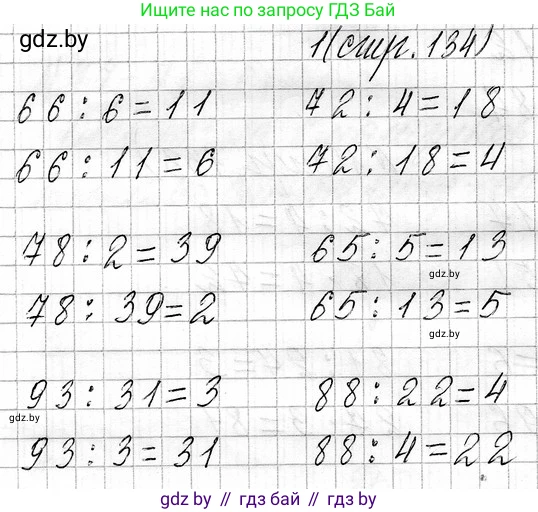 Ищите нас по запросу ГДЗ Бай
gdz.by
1(стр. 134)
66 : 6 = 11
72 : 4 = 18
66 : 11 = 6
72 : 18 = 4
78 : 2 = 39
65 : 5 = 13
gdz.by
78 : 39 = 2
65 : 13 = 5
gdz.by
93 : 31 = 3
88 : 22 = 4
gdz.by
93 : 3 = 31
88 : 4 = 22
gdz by // гдз бай // gdz.by